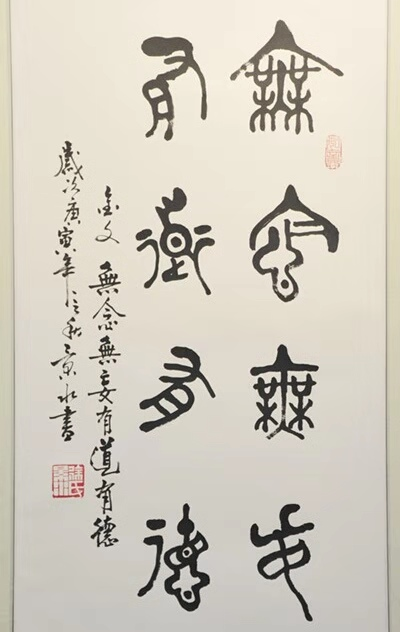 無念無妄
有道有德
金文 無念無妄有道有德
歲次庚寅年秋景水書